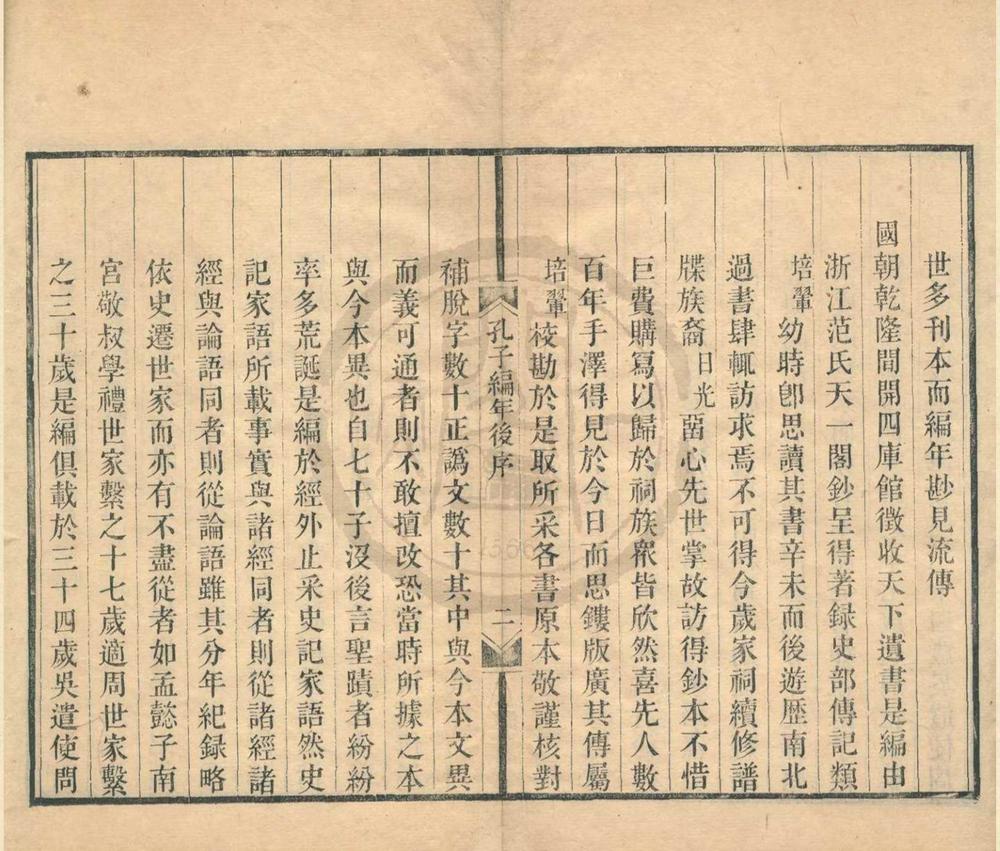 世多刊本而編年尠見流傳
國朝乾隆間開四庫館徵收天下遺書是編由
浙江范氏天一閣鈔呈得著録史部傳記類
培翬幼時卽思讀其書辛未而後遊歴南北
過書肆輒訪求焉不可得今歲家祠續修譜
牒族裔日光畱心先世掌故訪得鈔本不惜
巨費購寫以歸於祠族衆皆欣然喜先人數
百年手澤得見於今日而思鏤版廣其傳屬
培翬校勘於是取所采各書原本敬謹核對
孔子編年後序
二
補脫字數十正譌文數十其中與今本文異
而義可通者則不敢擅改恐當時所據之本
與今本異也自七十子沒後言聖蹟者紛紛
率多荒誕是編於經外止采史記家語然史
記家語所載事實與諸經同者則從諸經諸
經與論語同者則從論語雖其分年紀録略
依史遷世家而亦有不盡從者如孟懿子南
宮敬叔學禮世家繫之十七歲適周世家繫
之三十歲是編俱載於三十四歲吳遣使問